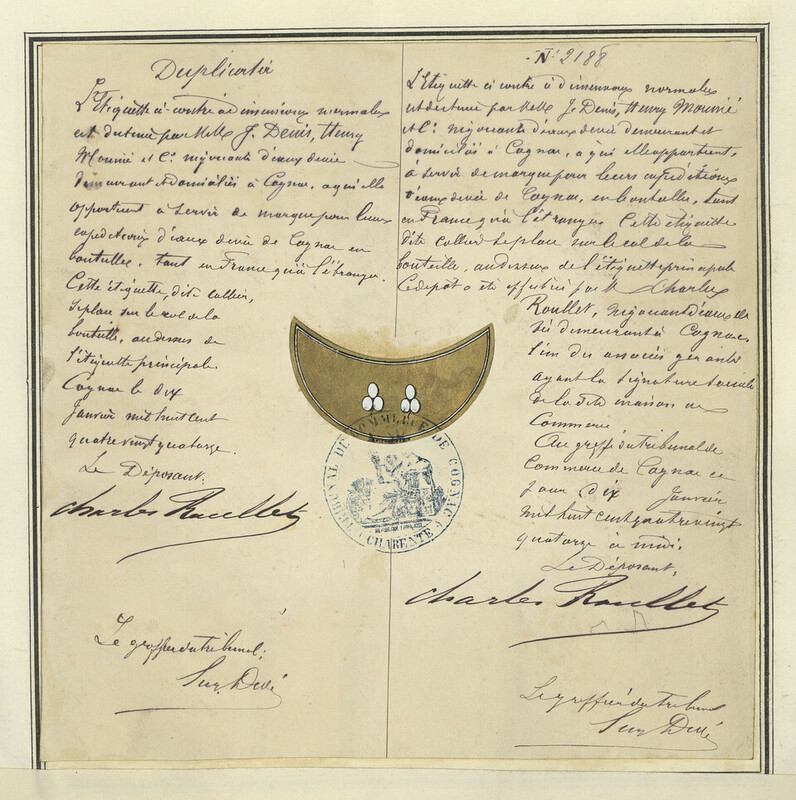 Duplicata
L'étiquette ci-contre de dimensions normales
est détenue par MM. J. Denis, Henry
Mounié et Cie négociants d'eaux de vie
demeurant et domiciliés à Cognac, à qui elle
appartient à servir de marque pour leurs
expéditions d'eaux de vie de Cognac en
bouteilles, tant en France qu'à l'étranger.
Cette étiquette, dite collier,
se place sur le col de la
bouteille, au dessus de
l'étiquette principale
Cognac le dix
Janvier mil huit cent
quatre vingt quatorze.
Le Déposant:
Charles Roullet
Le greffier du tribunal:
N° 2188
L'étiquette ci contre de dimensions normales
est détenue par MM. J. Denis, Henry Mounié
et Cie négociants d'eaux de vie demeurant et
domiciliés à Cognac, à qui elle appartient,
à servir de marque pour leurs expéditions
d'eaux de vie de Cognac, en bouteilles, tant
en France qu'à l'étranger. Cette étiquette
dite collier se place sur le col de la
bouteille, au dessus de l'étiquette principale
Ce dépôt a été effectué par M. Charles
Roullet, négociant d'eaux de
vie demeurant à Cognac,
l'un des associés gérants
ayant la signature sociale
de la dite maison de
Commerce.
Au greffe du tribunal de
Commerce de Cognac ce
jour dix Janvier
mil huit cent quatre vingt
quatorze à midi.
Le Déposant,
Charles Roullet
Le greffier du tribunal
TRIBUNAL DE COMMERCE DE COGNAC
CHARENTE